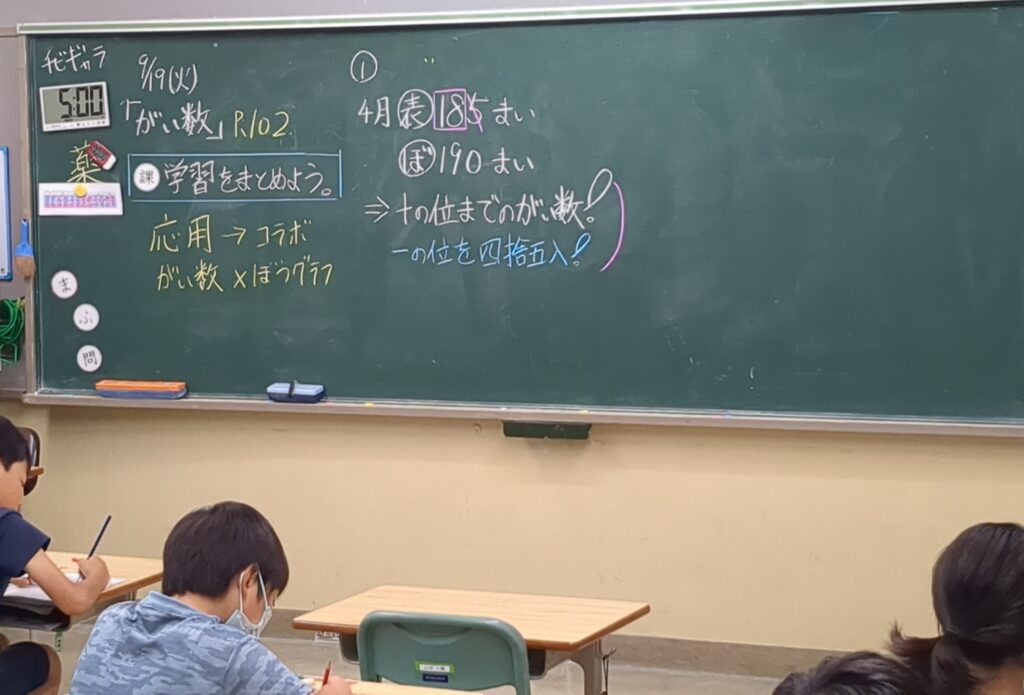 チビギャラ
5:00
薬
9/19(火)
「がい数」P.102
課 学習をまとめよう。
応用→コラボ
がい数×ぼうグラフ
ま
ふ
問
①
4月 表 185 まい
ぼ 190 まい
⇒十の位までのがい数!
一の位を四捨五入!